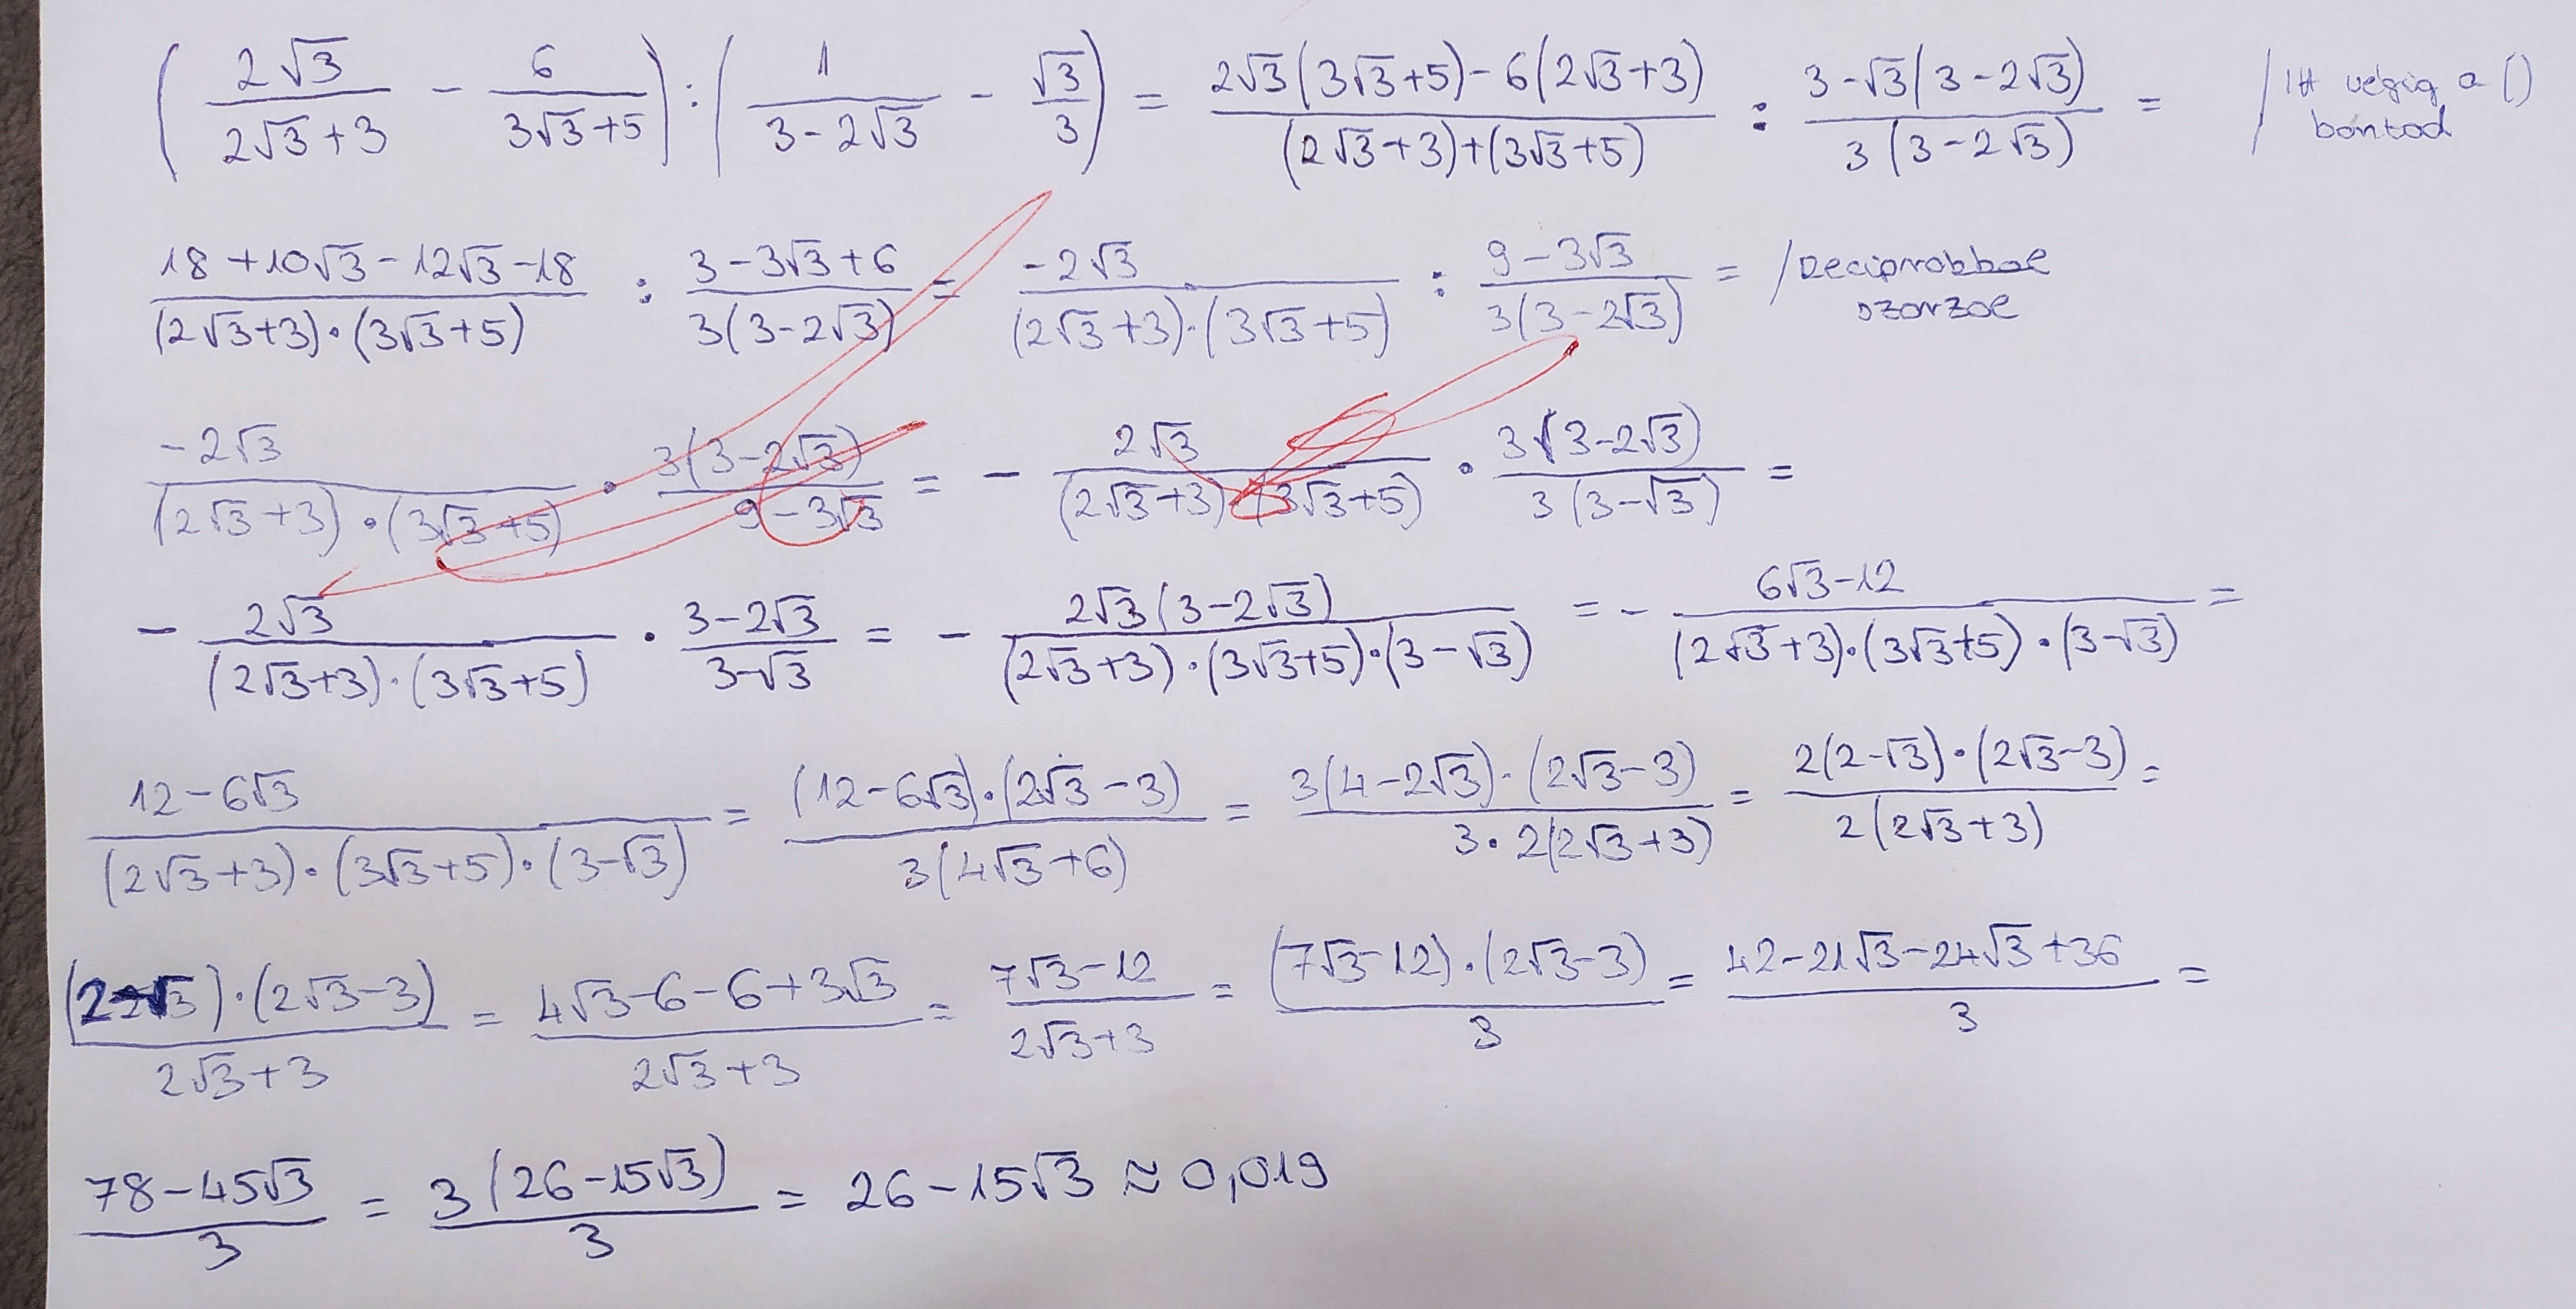 (2√3/(2√3+3) - 6/(3√3+5)) : (1/(3-2√3) - √3/3) = (2√3(3√3+5)-6(2√3+3))/((2√3+3)+(3√3+5)) : (3-√3(3-2√3))/(3(3-2√3)) = / Itt végig a () bontod
(18+10√3-12√3-18)/((2√3+3)·(3√3+5)) : (3-3√3+6)/(3(3-2√3)) = (-2√3)/((2√3+3)·(3√3+5)) : (9-3√3)/(3(3-2√3)) = / Reciprokkal szorzol
(-2√3)/((2√3+3)·(3√3+5)) · (3(3-2√3))/(9-3√3) = - (2√3)/((2√3+3)·(3√3+5)) · (3(3-2√3))/(3(3-√3)) =
- (2√3)/((2√3+3)·(3√3+5)) · (3-2√3)/(3-√3) = - (2√3(3-2√3))/((2√3+3)·(3√3+5)·(3-√3)) = - (6√3-12)/((2√3+3)·(3√3+5)·(3-√3)) =
(12-6√3)/((2√3+3)·(3√3+5)·(3-√3)) = ((12-6√3)·(2√3-3))/(3(4√3+6)) = (3(4-2√3)·(2√3-3))/(3·2(2√3+3)) = (2(2-√3)·(2√3-3))/(2(2√3+3)) =
((2-√3)·(2√3-3))/(2√3+3) = (4√3-6-6+3√3)/(2√3+3) = (7√3-12)/(2√3+3) = ((7√3-12)·(2√3-3))/3 = (42-21√3-24√3+36)/3 =
(78-45√3)/3 = (3(26-15√3))/3 = 26-15√3 ≈ 0,019